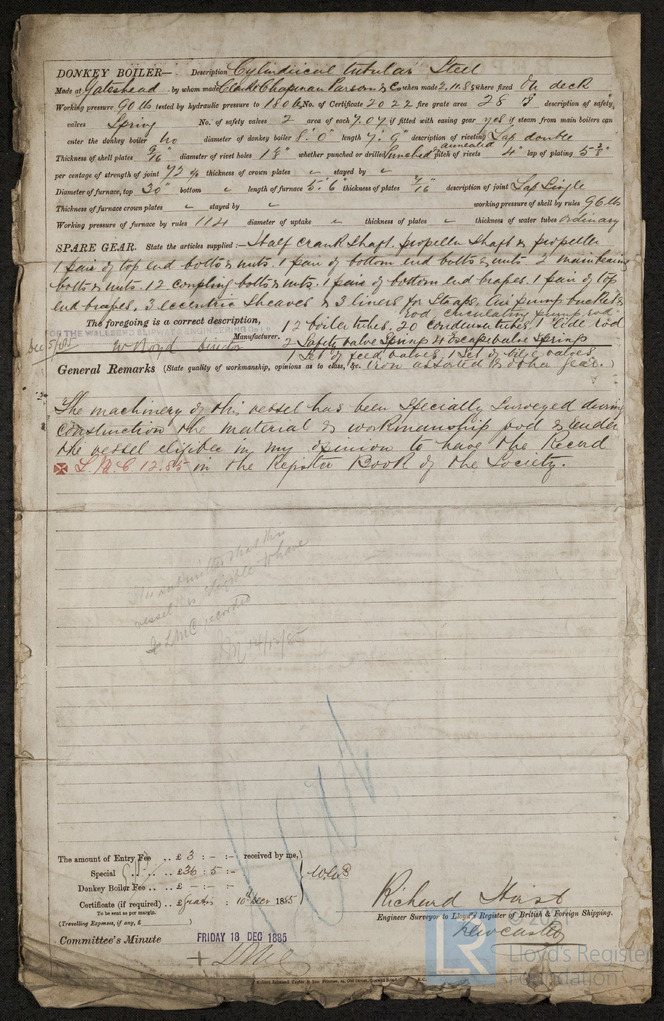 DONKEY BOILER— Description Cylindrical tubular Steel
Made at Gateshead by whom made Clarke Chapman Parsons & Co when made 2.11.85 where fixed On deck
Working pressure 90 lb tested by hydraulic pressure to 180 lb No. of Certificate 2022 fire grate area 28 description of safety
valves Spring No. of safety valves 2 area of each 7.07 if fitted with easing gear yes if steam from main boilers can
enter the donkey boiler no diameter of donkey boiler 8'.0" length 7'.9" description of riveting Lap double
annealed
Thickness of shell plates 9/16 diameter of rivet holes whether punched or drilled Punched pitch of rivets 4" lap of plating
per centage of strength of joint 72 % thickness of crown plates " stayed by "
Diameter of furnace, top 30" bottom " length of furnace 5'.6" thickness of plates 7/16 description of joint Lap Single
Thickness of furnace crown plates " stayed by " working pressure of shell by rules 96 lb
Working pressure of furnace by rules 114 diameter of uptake " thickness of plates " thickness of water tubes ordinary
SPARE GEAR. State the articles supplied:— Half crank shaft, propeller shaft & propeller
1 pair of top end bolts & nuts. 1 pair of bottom end bolts & nuts. 2 main bearing
bolts & nuts. 12 coupling bolts & nuts. 1 pair of bottom end brasses. 1 pair of top
end brasses. 3 eccentric sheaves & 3 liners for straps. Air pump bucket &
rod, circulating pump rod.
The foregoing is a correct description, 12 boiler tubes. 20 condenser tubes. 1 rod
FOR THE WALLSEND SLIPWAY & ENGINEERING Co Ld
Dec 5/85 W Boyd Director Manufacturer. 2 Safety valve Springs 4 Escape valve Springs
1 Set of feed valves, 1 Set of bilge valves
General Remarks (State quality of workmanship, opinions as to class, &c. Iron assorted & other gear.)
The machinery of this vessel has been specially surveyed during
construction the material & workmanship good & render
the vessel eligible in my opinion to have the Record
L.M.C 12.85 in the Register Book of the Society.
It is submitted that this
vessel is eligible to have
+ LMC recorded
14/12/85
The amount of Entry Fee .. £ 3 : - : - received by me,
Special .. .. £ 36 : 5 : -
Donkey Boiler Fee .. £ - : - : -
Certificate (if required) .. £ gratis : 10th Decr 1885
To be sent as per margin.
(Travelling Expenses, if any, £ )
Richard Hirst
Engineer Surveyor to Lloyd's Register of British & Foreign Shipping.
Newcastle
Committee's Minute FRIDAY 18 DEC 1885
+ LMC
LR
Lloyd's Register
Foundation